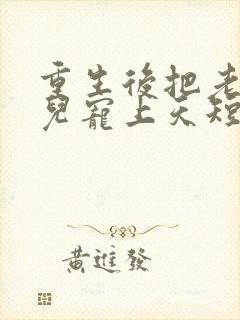 重生後把老
兒寵上天短
黃進發